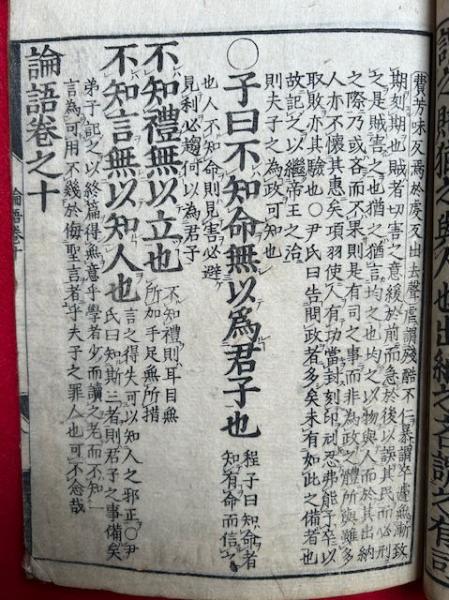 謂之賊猶之與人也出納之吝謂之有司
費芳味反焉於虔反出去聲虐謂殘酷不仁暴謂卒遽無漸致
期刻期也賊者切害之意緩於前而急於後以誤其民而必刑
之是賊害之也猶之猶言均之也均之以物與人而於其出納
之際乃或吝而不果則是有司之事而非為政之體所與雖多
人亦不懷其惠矣項羽使人有功當封刻印刓忍弗能予卒以
取敗亦其驗也○尹氏曰告問政者多矣未有如此之備者也
故記之以繼帝王之治
則夫子之為政可知也
○子曰不知命無以爲君子也
程子曰知命者
知有命而信之
也人不知命則見害必避
見利必趨何以為君子
不知禮無以立也
不知禮則耳目無
所加手足無所措
不知言無以知人也
言之得失可以知人之邪正○尹
氏曰知斯三者則君子之事備矣
弟子記之以終篇得無意乎學者少而讀之老而不知一
言為可用不幾於侮聖言者乎夫子之罪人也可不念哉
論語卷之十
論語卷十